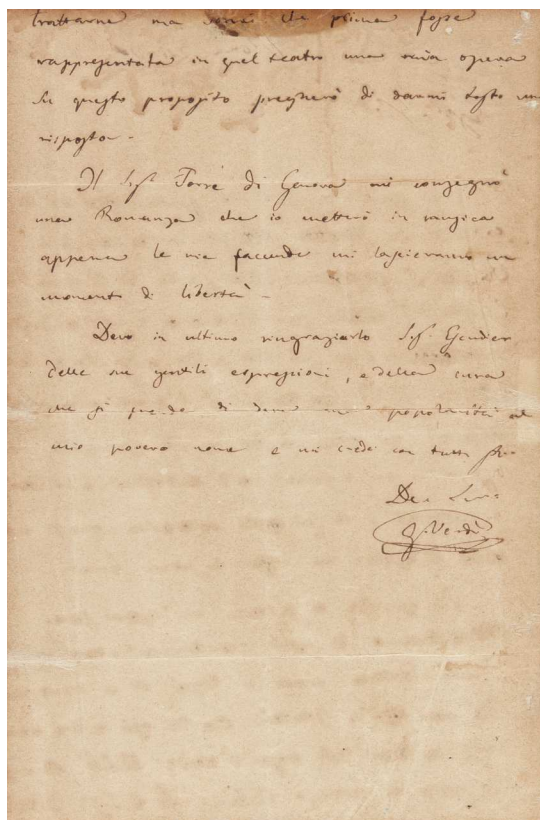 trattarne ma che prima fosse
rappresentata in quel teatro una mia opera
Su questo proposito pregherò di darmi tosto una
risposta -
Il Sigr Torre di Genova mi consegnò
una Romanza che io metterò in musica
appena le mie faccende mi lascieranno un
momento di libertà -
Devo in ultimo ringraziarlo Sigr Escudier
delle sue gentili espressioni, e della cura
che si prende di dare popolarità al
mio povero nome e mi creda con tutta
Dev
G. Verdi